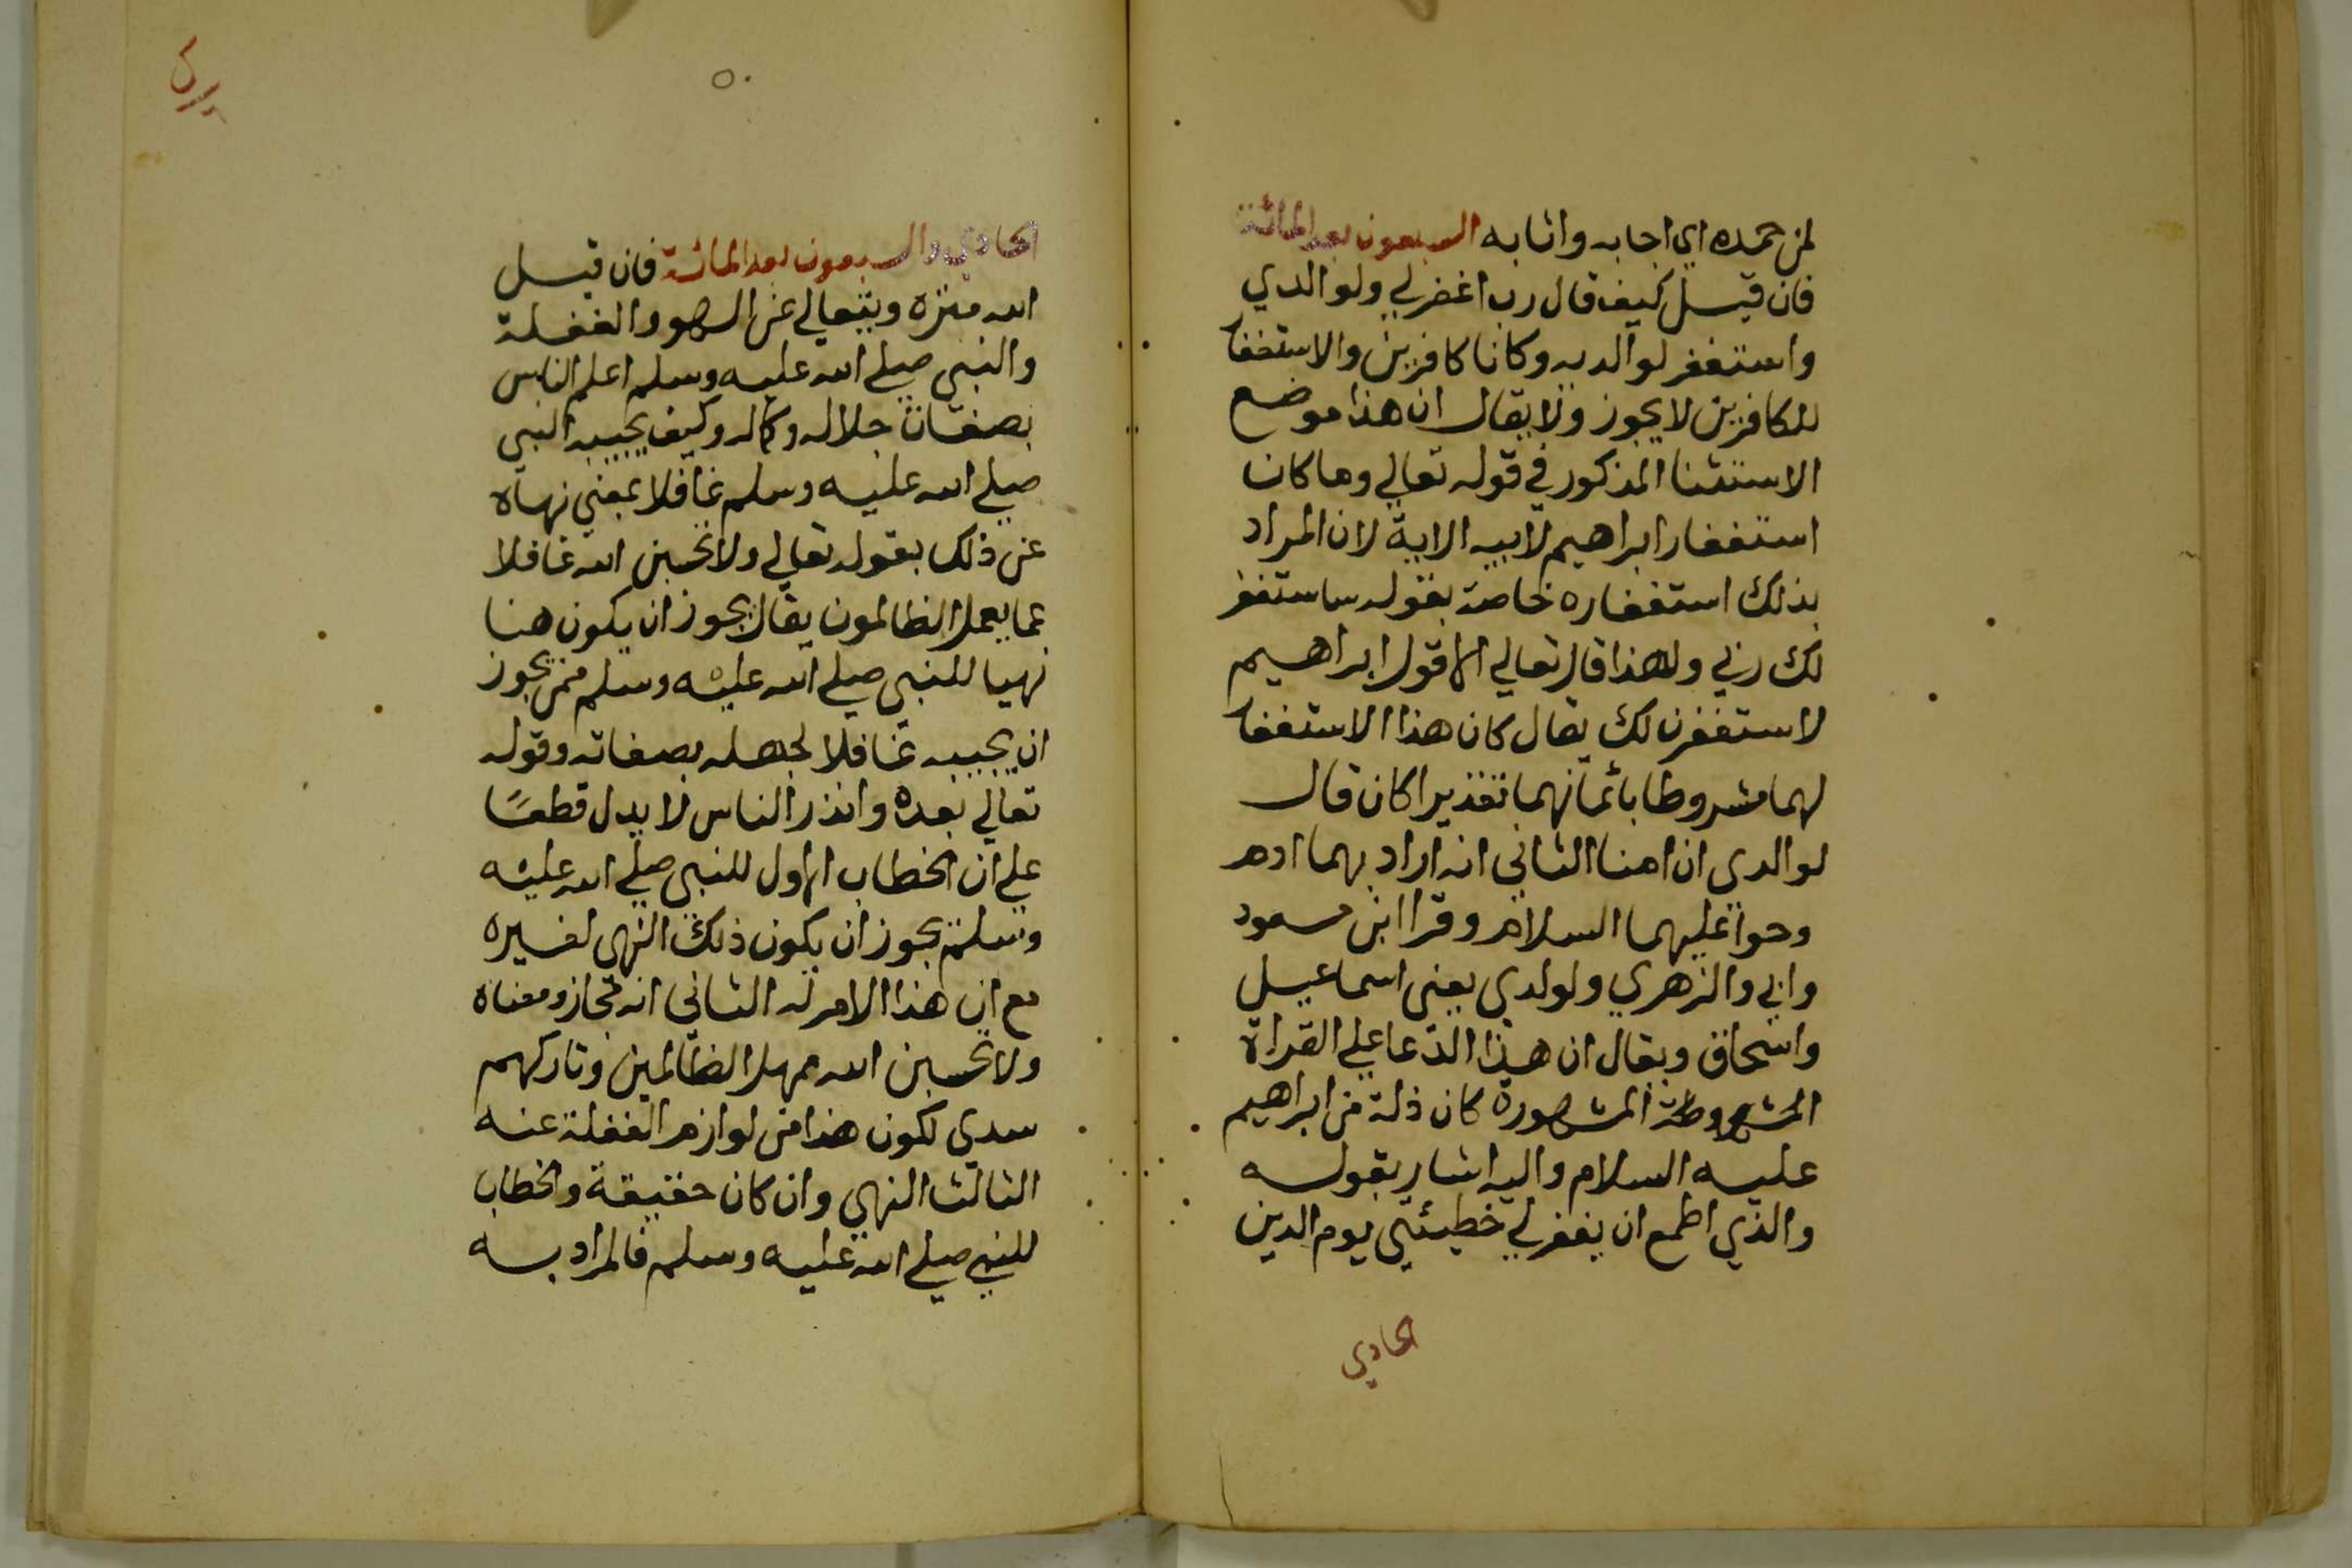 لمن حمده اي اجابه واثابه السبعون بعد المائة
فان قيل كيف قال رب اغفر لي ولوالدي
واستغفر لوالديه وكانا كافرين والاستغفا
للكافرين لا يجوز ولا يقال ان هذا موضع
الاستثنا المذكور في قوله تعالي وما كان
استغفار ابراهيم لابيه الاية لان المراد
بذلك استغفاره خاصة بقوله ساستغفر
لك ربي ولهذا قال تعالي الا قول ابراهيم
لاستغفرن لك يقال كان هذا الاستغفا
لهما مشروطا بائمانهما تقديرا كان قال
لوالدي ان امنا الثاني انه اراد بهما ادم
وحوا عليهما السلام وقرا ابن مسعود
وابي والزهري ولولدي يعني اسماعيل
واسحاق ويقال ان هذا الدعا علي القراة
المشهورة كان ذلة من ابراهيم
عليه السلام واليه اشار بقوله
والذي اطمع ان يغفر لي خطيئتي يوم الدين
الحادي
٥٠
الحادي والسبعون بعد المائة فان قيل
الله منزه ويتعالي عن السهو والغفلة
والنبي صلي الله عليه وسلم اعلم الناس
بصفات جلاله وكماله وكيف يحسبه النبي
صلي الله عليه وسلم غافلا بمعني نهاه
عن ذلك بقوله تعالي ولا تحسبن الله غافلا
عما يعمل الظالمون يقال يجوز ان يكون هنا
نهيا للنبي صلي الله عليه وسلم ممن يجوز
ان يحسبه غافلا لجهله بصفاته وقوله
تعالي بعده وانذر الناس لا يدل قطعًا
علي ان الخطاب الاول للنبي صلي الله عليه
وسلم يجوز ان يكون ذلك النهي لغيره
مع ان هذا الامر له الثاني انه مجاز ومعناه
ولا تحسبن الله مهمل الظالمين وتاركهم
سدي لكون هذا من لوازم الغفلة عنه
الثالث النهي وان كان حقيقة والخطاب
للنبي صلي الله عليه وسلم فالمراد به